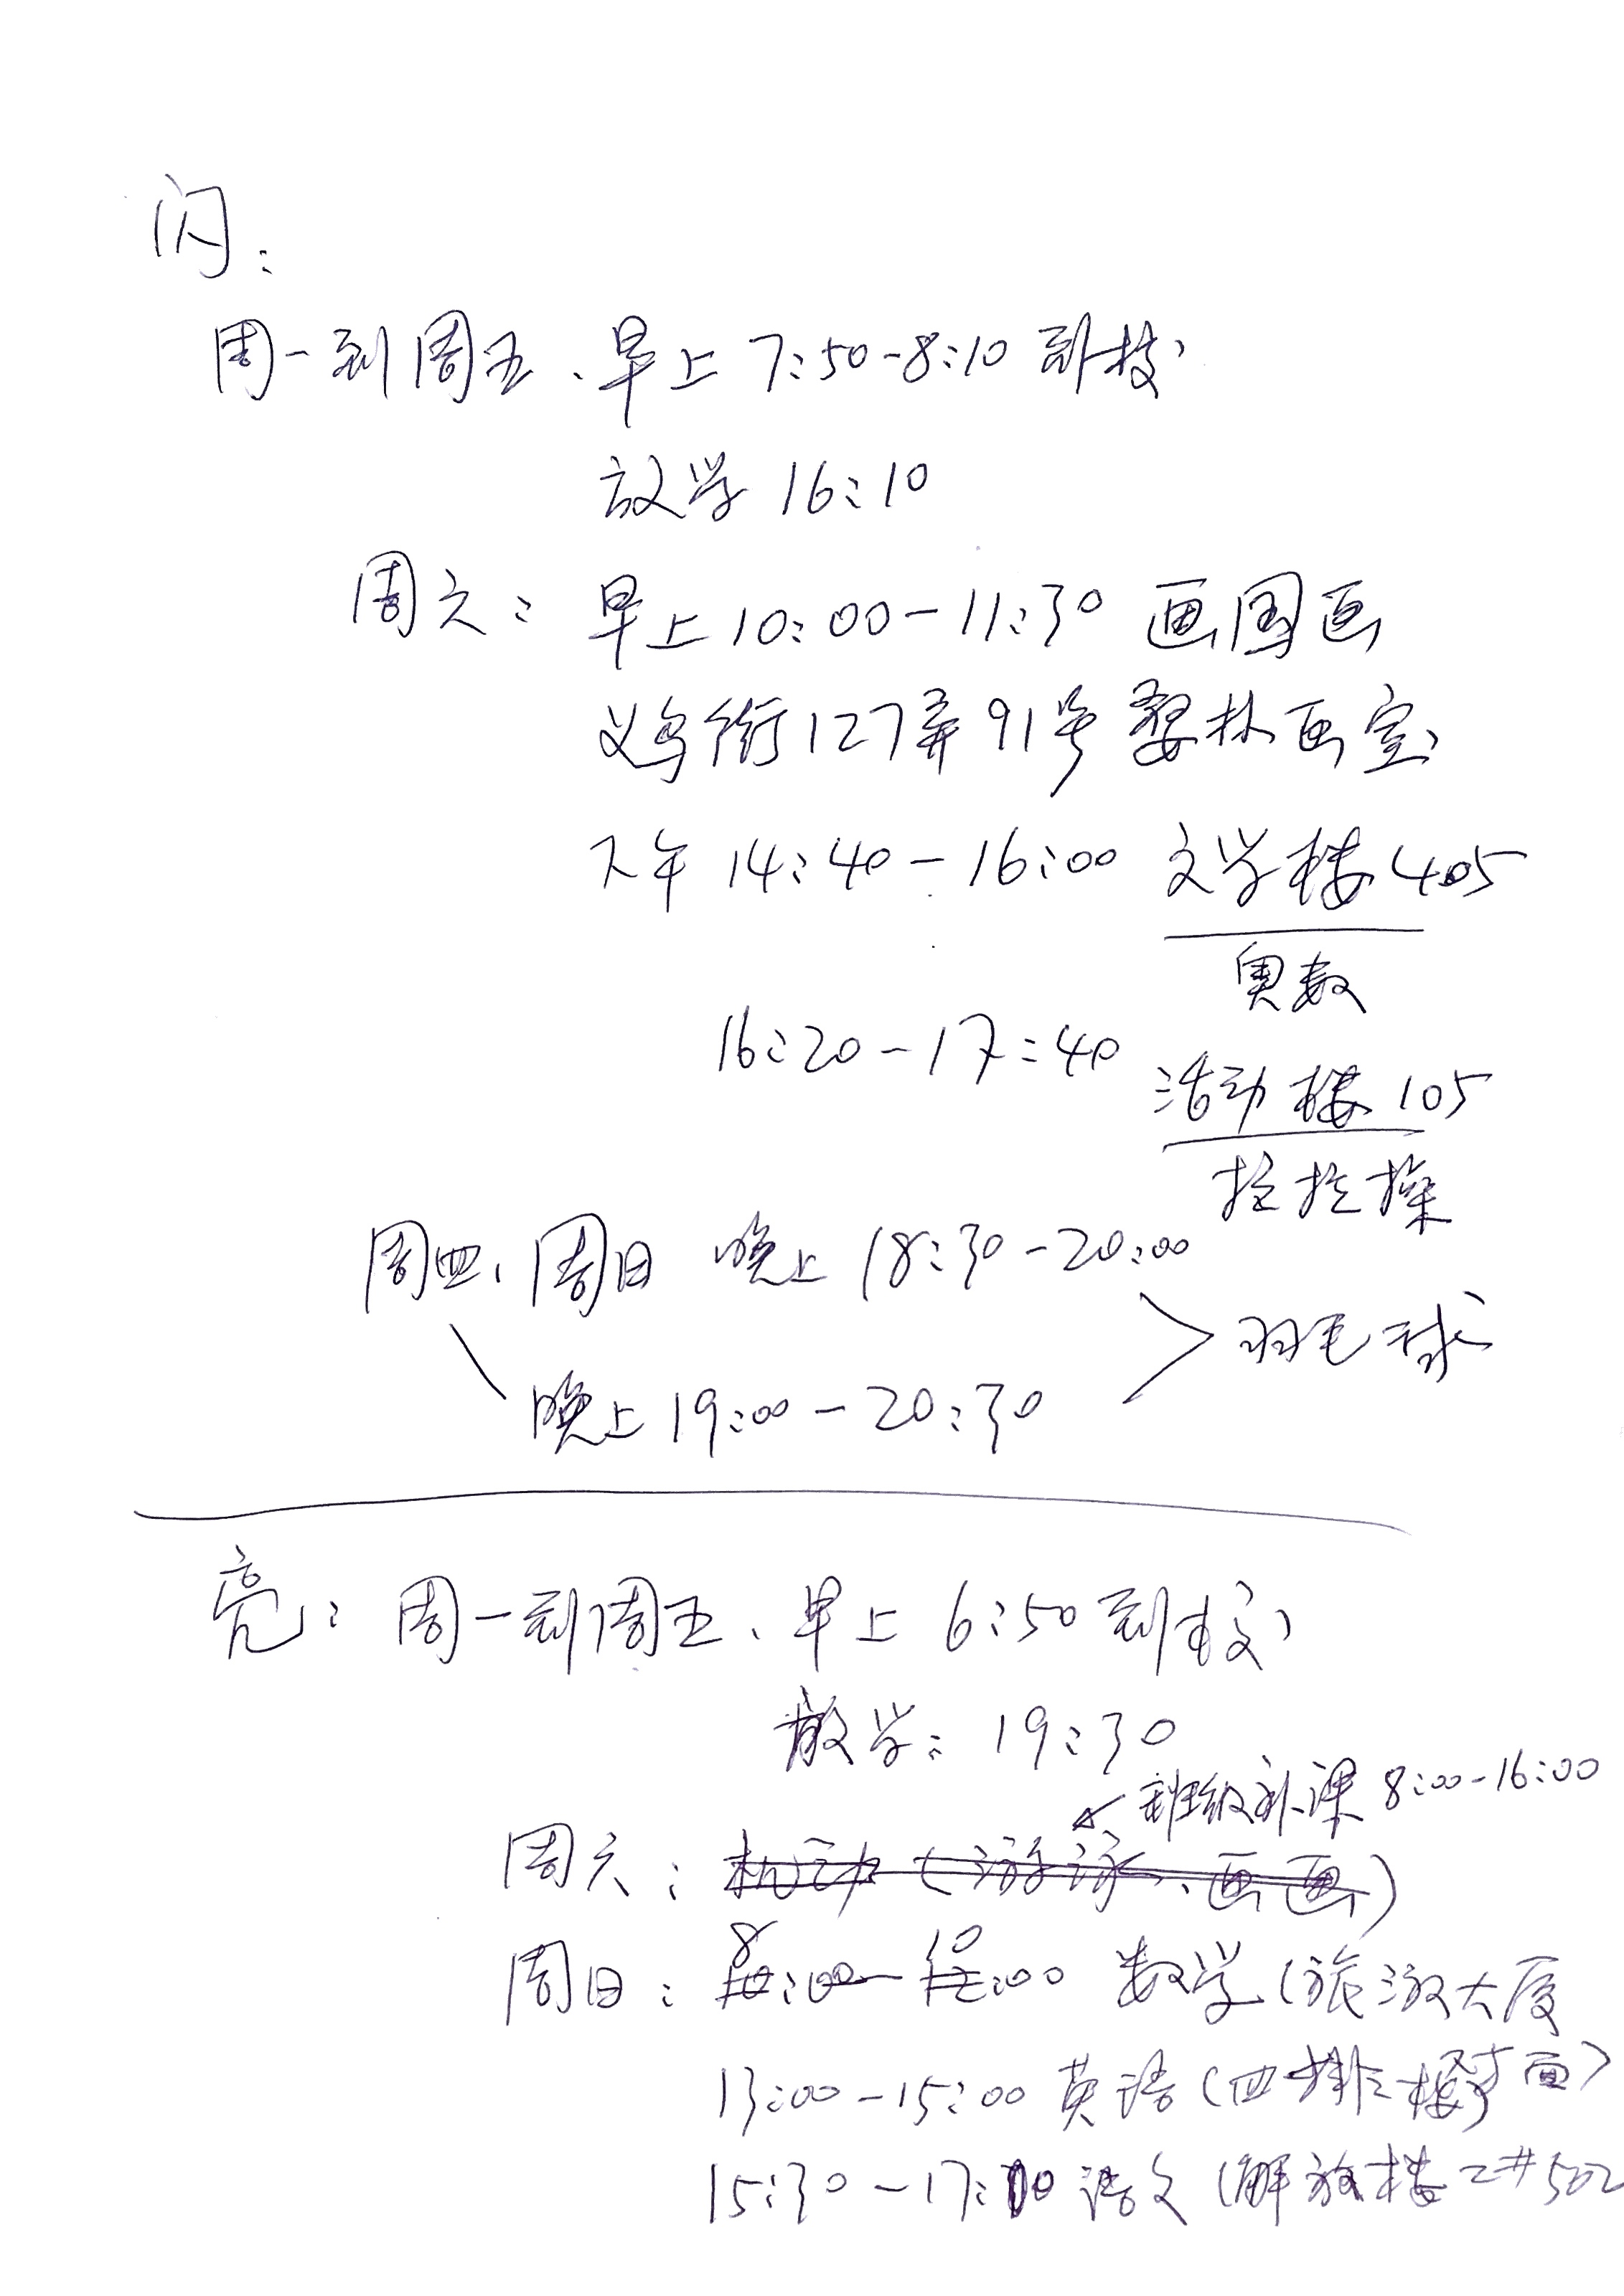 闪:
周一到周五、早上 7:50-8:10 到校
放学 16:10
周六: 早上 10:00-11:30 画国画
义乌街127弄91号 黎林画室
下午 14:40-16:00 文学楼405
奥数
16:20-17:40 活动楼105
拉拉操
周四、周日 晚上 18:30-20:00
羽毛球
晚上 19:00-20:30
亮: 周一到周五、早上 6:50 到校
放学: 19:30
班级补课 8:00-16:00
周六: 机动 (游泳、画画)
周日: 8:00-10:00 数学 (旅游大厦
13:00-15:00 英语 (四排楼 面)
15:30-17:10 语文 (解放楼2#502